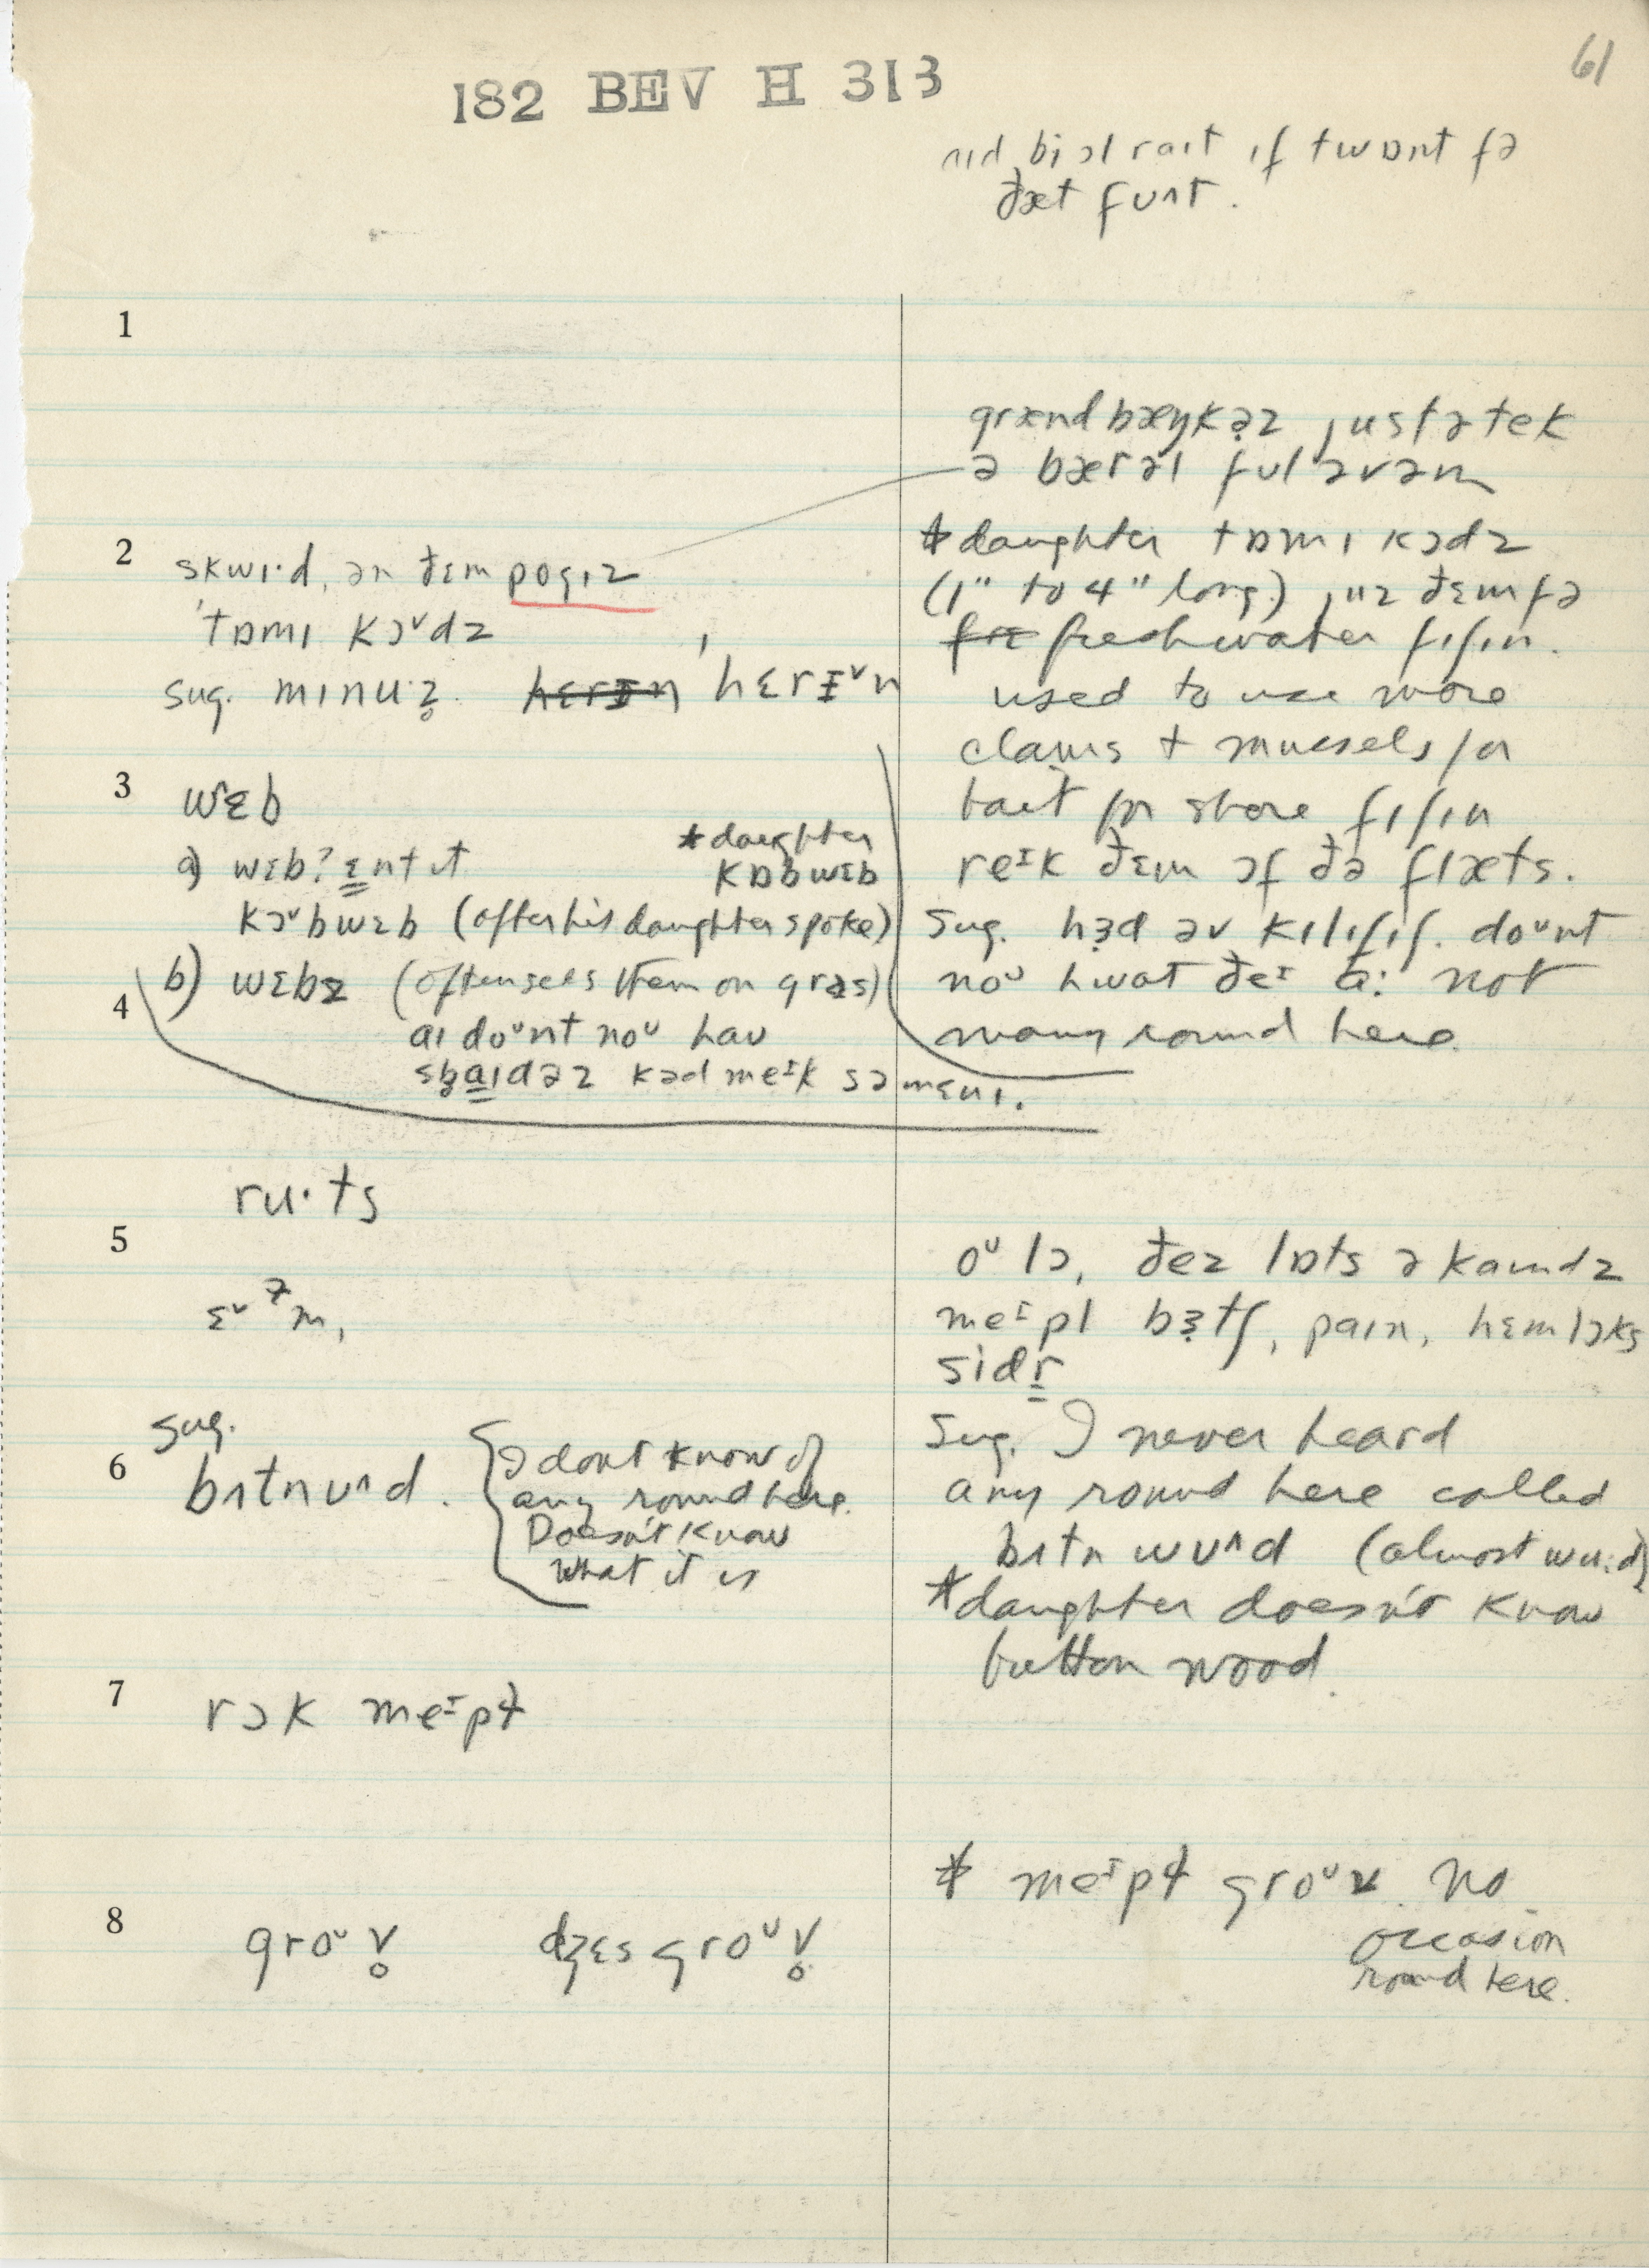 61
182 BEV H 313
bi ɔl raɪt ɪf twɒnt fə
ðæt fʊʌt.
1
grænd bæŋkəz justə tek
ə bærəl fʊl əv əm
2
skwɪ·d, ən ðɛm pogɪz
'tɒmɪ kɔˇdz
sug. mɪnu·z̥ hɛrɪn hɛrɪˇn
* daughter tɒmɪ kɔdz
(1" to 4" long) juz ðɛm fə
freshwater fɪʃɪn.
used to use more
clams + mussels for
bait for shore fɪʃɪn
reᶦk ðɛm ɔf ðə flæts.
sug. hɜd əv kɪlɪfɪʃ. doᶷnt
noᶷ hwat ðeᶦ a: not
many round here.
3
wɛb
a) wɛb? ɛntɪt
* daughter
kɒbwɛb
kɔˇbwɛb (after his daughter spoke)
4
b) wɛbz (often sees them on græs)
aɪ doᶷnt noᶷ hau
spaɪdəz kəd meᶦk sə mɛnɪ.
ru·ts
5
ɛˇᵊm,
oᶷ lɔ, ðez lɒts ə kaɪndz
meᶦpl bɜtʃ, paɪn, hɛmlɔks
sidr
6
sug.
bʌtnʊʌd.
I dont know of
any round here.
Doesn't know
what it is
sug. I never heard
any round here called
bʌtn wʊʌd (almost wu:d)
* daughter doesn't know
button wood.
7
rɔk meᶦpɫ
* meᶦpɫ groᶷv. no
occasion
round here.
8
groᶷv̥ dʒɛs groᶷv̥